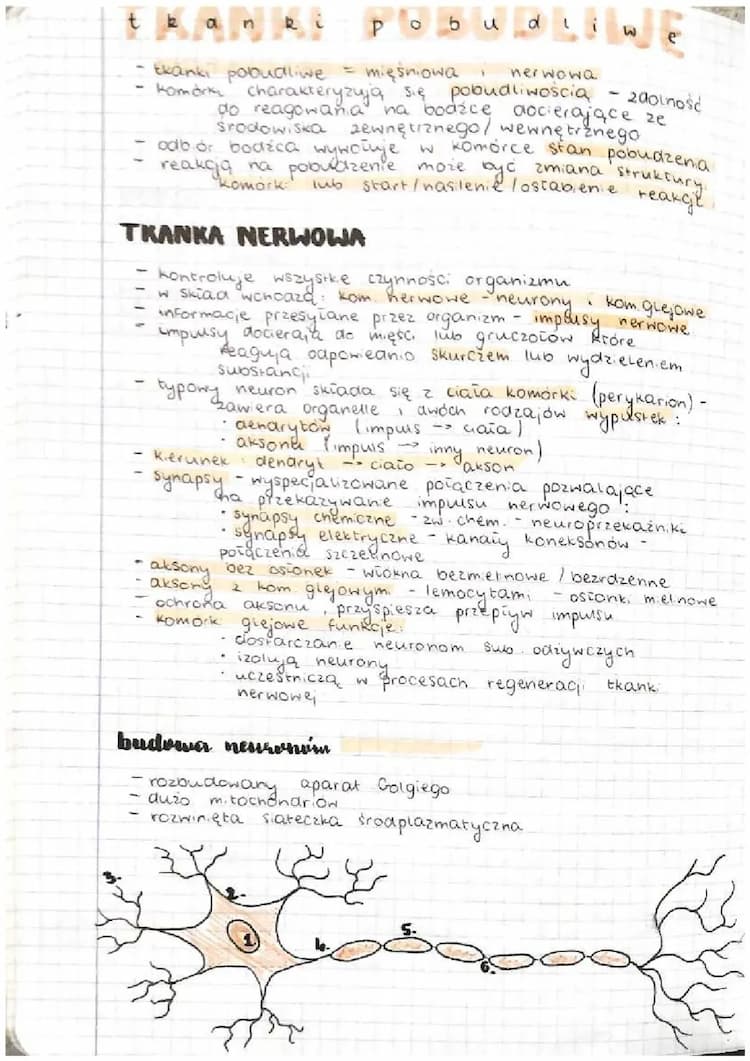 TKANKI POBUDLIWE
tkanki pobudliwe
- tkanki pobudliwe = mięśniowa i nerwowa
- komórki charakteryzują się pobudliwością - zdolność
do reagowania na bodźce docierające ze
środowiska zewnętrznego/wewnętrznego
- odbiór bodźca wywołuje w komórce stan pobudzenia
- reakcją na pobudzenie może być zmiana struktury
komórki lub start/nasilenie/osłabienie reakcji
TKANKA NERWOWA
- kontroluje wszystkie czynności organizmu
- w skład wchodzą: kom. nerwowe - neurony i kom. glejowe
- informacje przesyłane przez organizm - impulsy nerwowe
- impulsy docierają do mięści lub gruczołów które
reagują odpowiednio skurczem lub wydzieleniem
substancji
- typowy neuron składa się z ciała komórki (perykarion) -
zawiera organelle i dwóch rodzajów wypustek:
· dendrytów (impuls → ciała)
· aksonu (impuls → inny neuron)
- kierunek: dendryt → ciało → akson
- synapsy - wyspecjalizowane połączenia pozwalające
na przekazywanie impulsu nerwowego:
· synapsy chemiczne - zw. chem. - neuroprzekaźniki
· synapsy elektryczne - kanały koneksonów -
połączenia szczelinowe
- aksony bez osłonek - włókna bezmielinowe / bezrdzenne
- aksony z kom. glejowymi - lemocytami - osłonki mielinowe
- ochrona aksonu, przyśpiesza przepływ impulsu
- komórki glejowe funkcje:
· dostarczanie neuronom sub. odżywczych
· izolują neurony
· uczestniczą w procesach regeneracji tkanki
nerwowej
budowa neuronów
- rozbudowany aparat Golgiego
- dużo mitochondriów
- rozwinięta siateczka śródplazmatyczna
3.
2.
1
4.
5.
6.